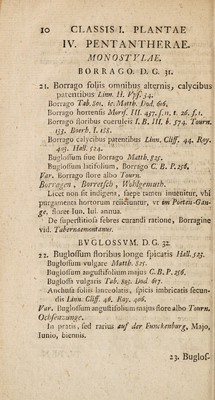 10 CLASSIS I. PLANTAE
IV. PENTANTHERAE.
MONOSTYLAE.
BORRAGO. D. G. 31.
21. Borrago foliis omnibus alternis, calycibus
patentibus Linn. H. Vpf. 34.
Borrago Tab. 801. ic. Matth. Dod. 616.
Borrago hortensis Moris. III. 437. s. 11. t. 26. f. 1.
Borrago floribus coeruleis I. B. III. b. 574. Tourn.
133. Boerh. I. 188.
Borrago calycibus patentibus Linn. Cliff. 44. Roy.
403. Hall. 524.
Buglossum siue Borrago Matth. 825.
Buglossum latifolium, Borrago C. B. P. 256.
Var. Borrago flore albo Tourn.
Borragen, Borretsch, Wohlgemuth.
Licet non sit indigena, saepe tamen inuenitur, vbi
purgamenta hortorum reiiciuntur, vt im Posten-Gan-
ge. floret Iun. Iul. annua.
De superstitiosa febres curandi ratione, Borragine
vid. Tabernaemontanus.
BVGLOSSVM. D. G. 32.
22. Buglossum floribus longe spicatis Hall. 523.
Buglossum vulgare Matth. 825.
Buglossum angustifolium majus C. B. P. 256.
Buglossa vulgaris Tab. 803. Dod. 617.
Anchusa foliis lanceolatis, spicis imbricatis secun-
dis Linn. Cliff. 46. Roy. 406.
Var. Buglossum angustifolium majus flore albo Tourn.
Ochsenzunge.
In pratis, sed rarius auf der Funckenburg, Majo,
Iunio, biennis.
23. Buglos-